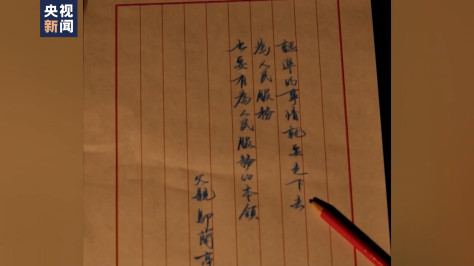 央视
新闻
認準的事情就要走下去
為人民服務
也要有為人民服務的本領
父親 蘭